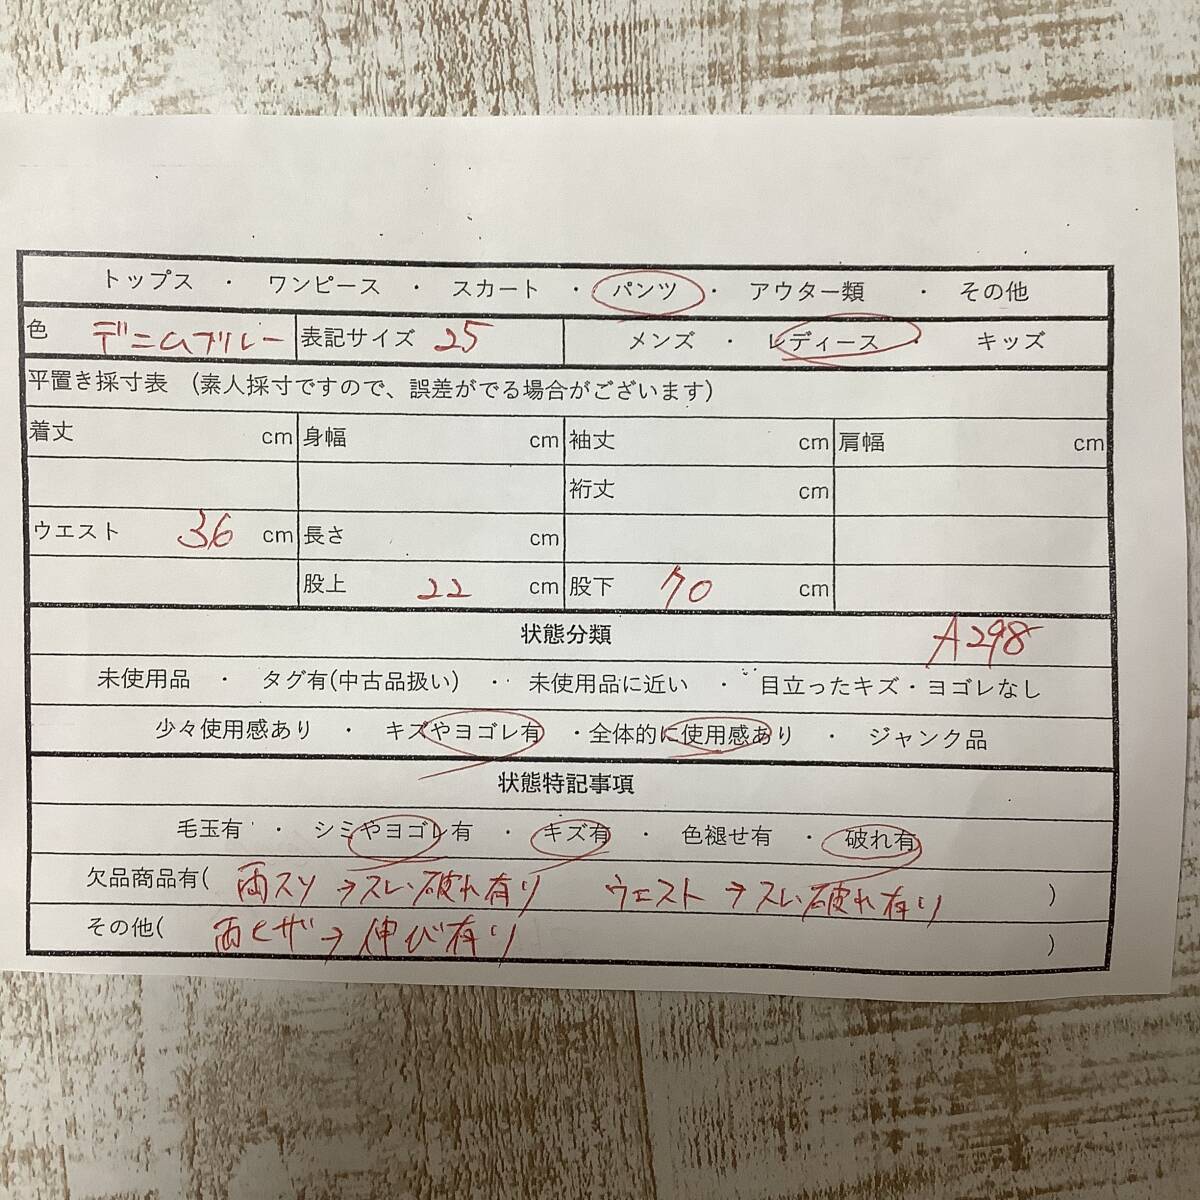 トップス ・ ワンピース ・ スカート ・ パンツ ・ アウター類 ・ その他
色 デニムブルー 表記サイズ 25 メンズ ・ レディース ・ キッズ
平置き採寸表 (素人採寸ですので、誤差がでる場合がございます)
着丈 cm 身幅 cm 袖丈 cm 肩幅 cm
裄丈 cm
ウエスト 36 cm 長さ cm
股上 22 cm 股下 70 cm
状態分類 A298
未使用品 ・ タグ有(中古品扱い) ・ 未使用品に近い ・ 目立ったキズ・ヨゴレなし
少々使用感あり ・ キズやヨゴレ有 ・全体的に使用感あり ・ ジャンク品
状態特記事項
毛玉有 ・ シミやヨゴレ有 ・ キズ有 ・ 色褪せ有 ・ 破れ有
欠品商品有( 両スソ→スレ、破れ有り ウエスト→スレ、破れ有り )
その他( 両ヒザ→伸び有り )